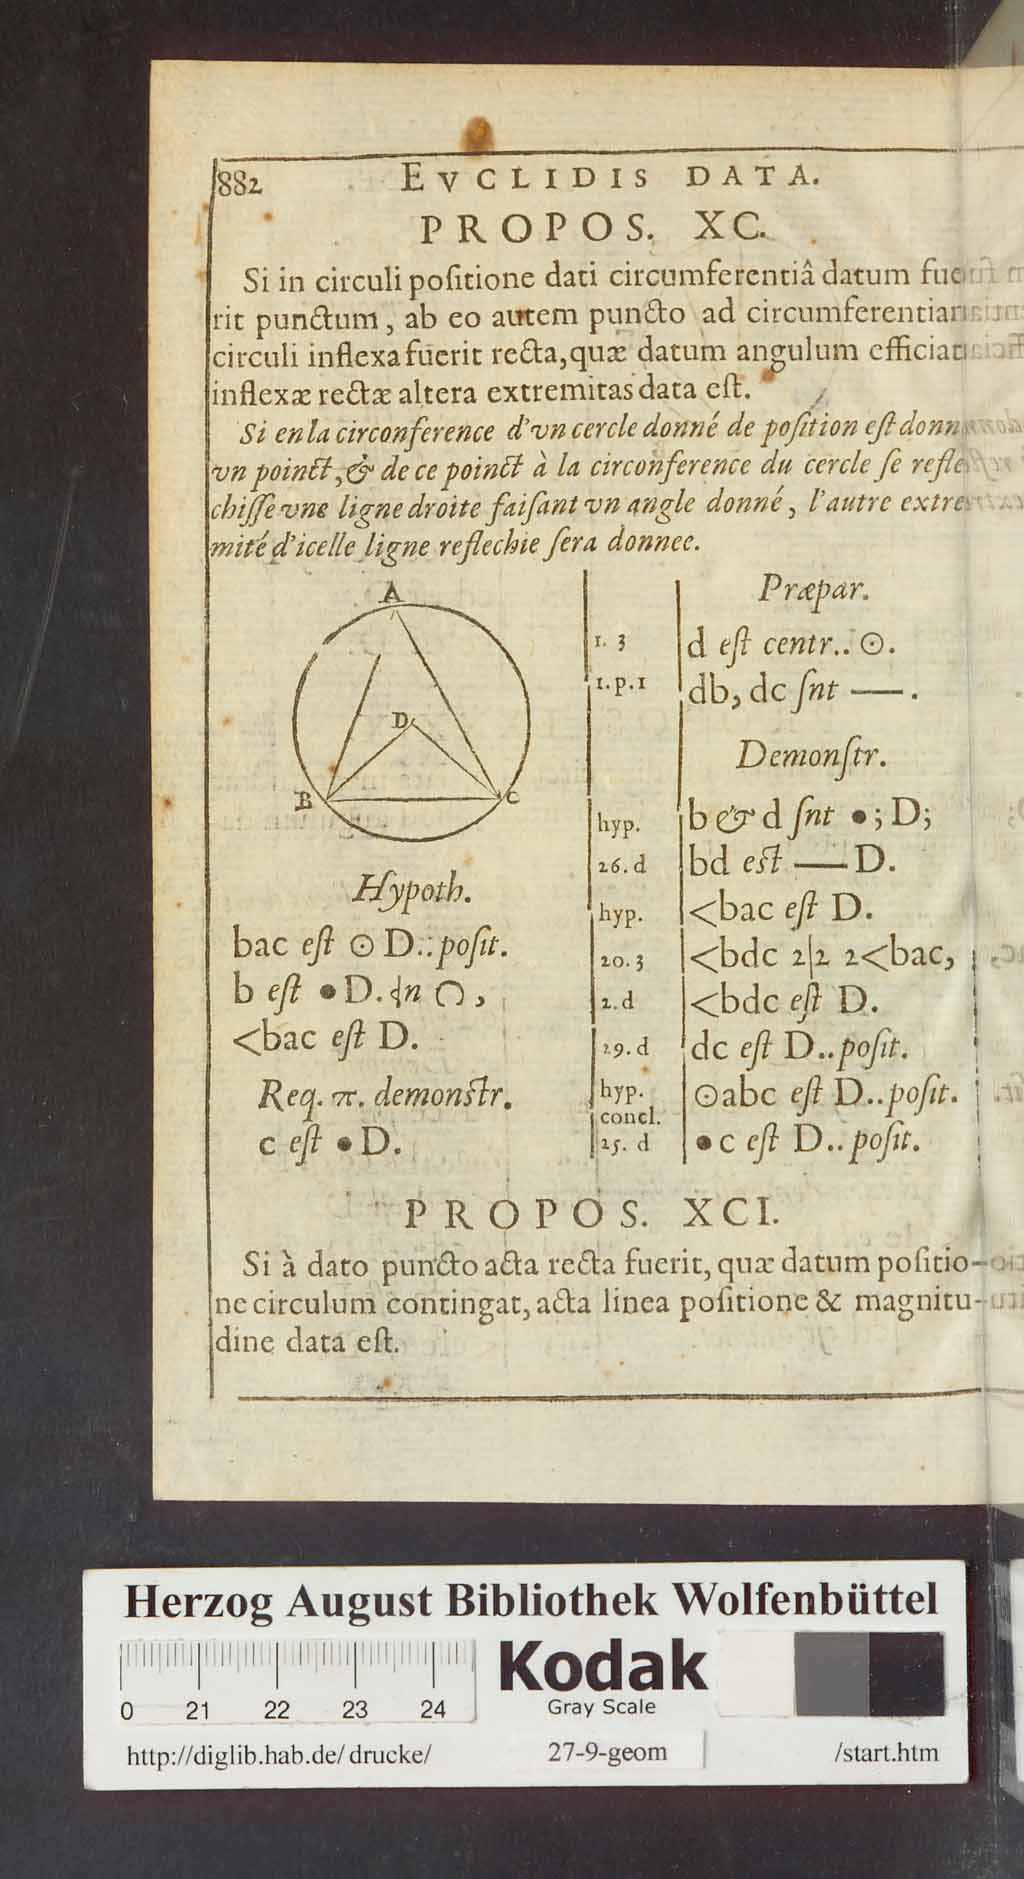 882 EVCLIDIS DATA.
PROPOS. XC.
Si in circuli poſitione dati circumferentiâ datum fue
rit punctum, ab eo autem puncto ad circumferentiam
circuli inflexa fuerit recta, quæ datum angulum efficiat
inflexæ rectæ altera extremitas data eſt.
Si en la circonference d'vn cercle donné de poſition eſt donné
vn poinct, & de ce poinct à la circonference du cercle ſe refle
chiſſe vne ligne droite faiſant vn angle donné, l'autre extre
mité d'icelle ligne reflechie ſera donnee.
A
D
B
C
Hypoth.
bac eſt ⊙ D.. poſit.
b eſt • D. in ◠,
<bac eſt D.
Req. π. demonſtr.
c eſt • D.
Præpar.
1. 3 d eſt centr.. ⊙.
1.p.1 db, dc ſnt —.
Demonſtr.
hyp. b & d ſnt •; D;
26.d bd eſt — D.
hyp. <bac eſt D.
20.3 <bdc 2|2 2<bac,
2.d <bdc eſt D.
29.d dc eſt D.. poſit.
hyp. ⊙abc eſt D.. poſit.
concl.
25. d • c eſt D.. poſit.
PROPOS. XCI.
Si à dato puncto acta recta fuerit, quæ datum poſitio-
ne circulum contingat, acta linea poſitione & magnitu-
dine data eſt.
Herzog August Bibliothek Wolfenbüttel
0 21 22 23 24
Kodak
Gray Scale
http://diglib.hab.de/drucke/ 27-9-geom /start.htm